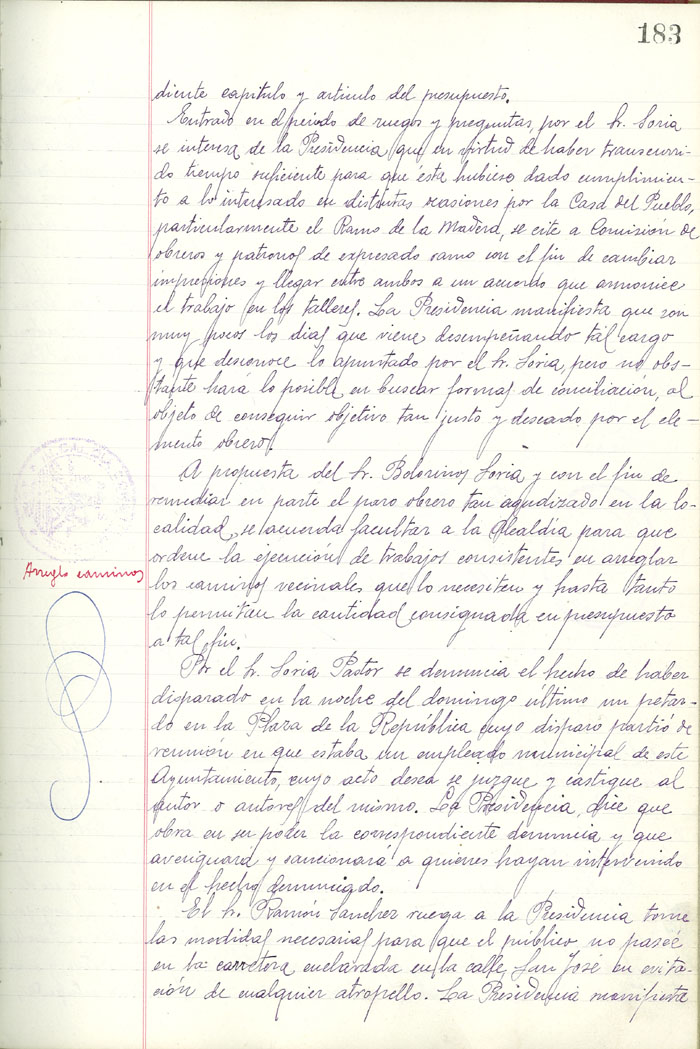 183
diente capitulo y articulo del presupuesto.
Entrado en el periodo de ruegos y preguntas, por el Sr. Soria
se interesa de la Presidencia que en virtud de haber transcurri-
do tiempo suficiente para que ésta hubiese dado cumplimien-
to a lo interesado en distintas ocasiones por la Casa del Pueblo,
particularmente el Ramo de la Madera, se cite a Comisión de
obreros y patronos de expresado ramo con el fin de cambiar
impresiones y llegar entre ambos a un acuerdo que armonice
el trabajo en los talleres. La Presidencia manifiesta que son
muy pocos los dias que viene desempeñando tal cargo
y que desconoce lo apuntado por el Sr. Soria, pero no obs-
tante hara lo posible en buscar formas de conciliación, al
objeto de conseguir objetivo tan justo y deseado por el ele-
mento obrero.
A propuesta del Sr. Soria y con el fin de
remediar en parte el paro obrero tan agudizado en la lo-
calidad, se acuerda facultar a la Alcaldía para que
ordene la ejecución de trabajos consistentes en arreglar
Arreglo caminos
los caminos vecinales que lo necesiten y hasta tanto
lo permitan la cantidad consignada en presupuesto
a tal fin.
Por el Sr. Soria Pastor se denuncia el hecho de haber
disparado en la noche del domingo último un petar-
do en la Plaza de la República cuyo disparo partió de
reunión en que estaba un empleado municipal de este
Ayuntamiento, cuyo acto desea se juzgue y castigue al
autor o autores del mismo. La Presidencia, dice que
obra en su poder la correspondiente denuncia y que
averiguará y sancionará a quienes hayan intervenido
en el hecho denunciado.
El Sr. Ramón Sanchez ruega a la Presidencia tome
las medidas necesarias para que el público no paseé
en la carretera enclavada en la calle San José en evita-
ción de cualquier atropello. La Presidencia manifiesta